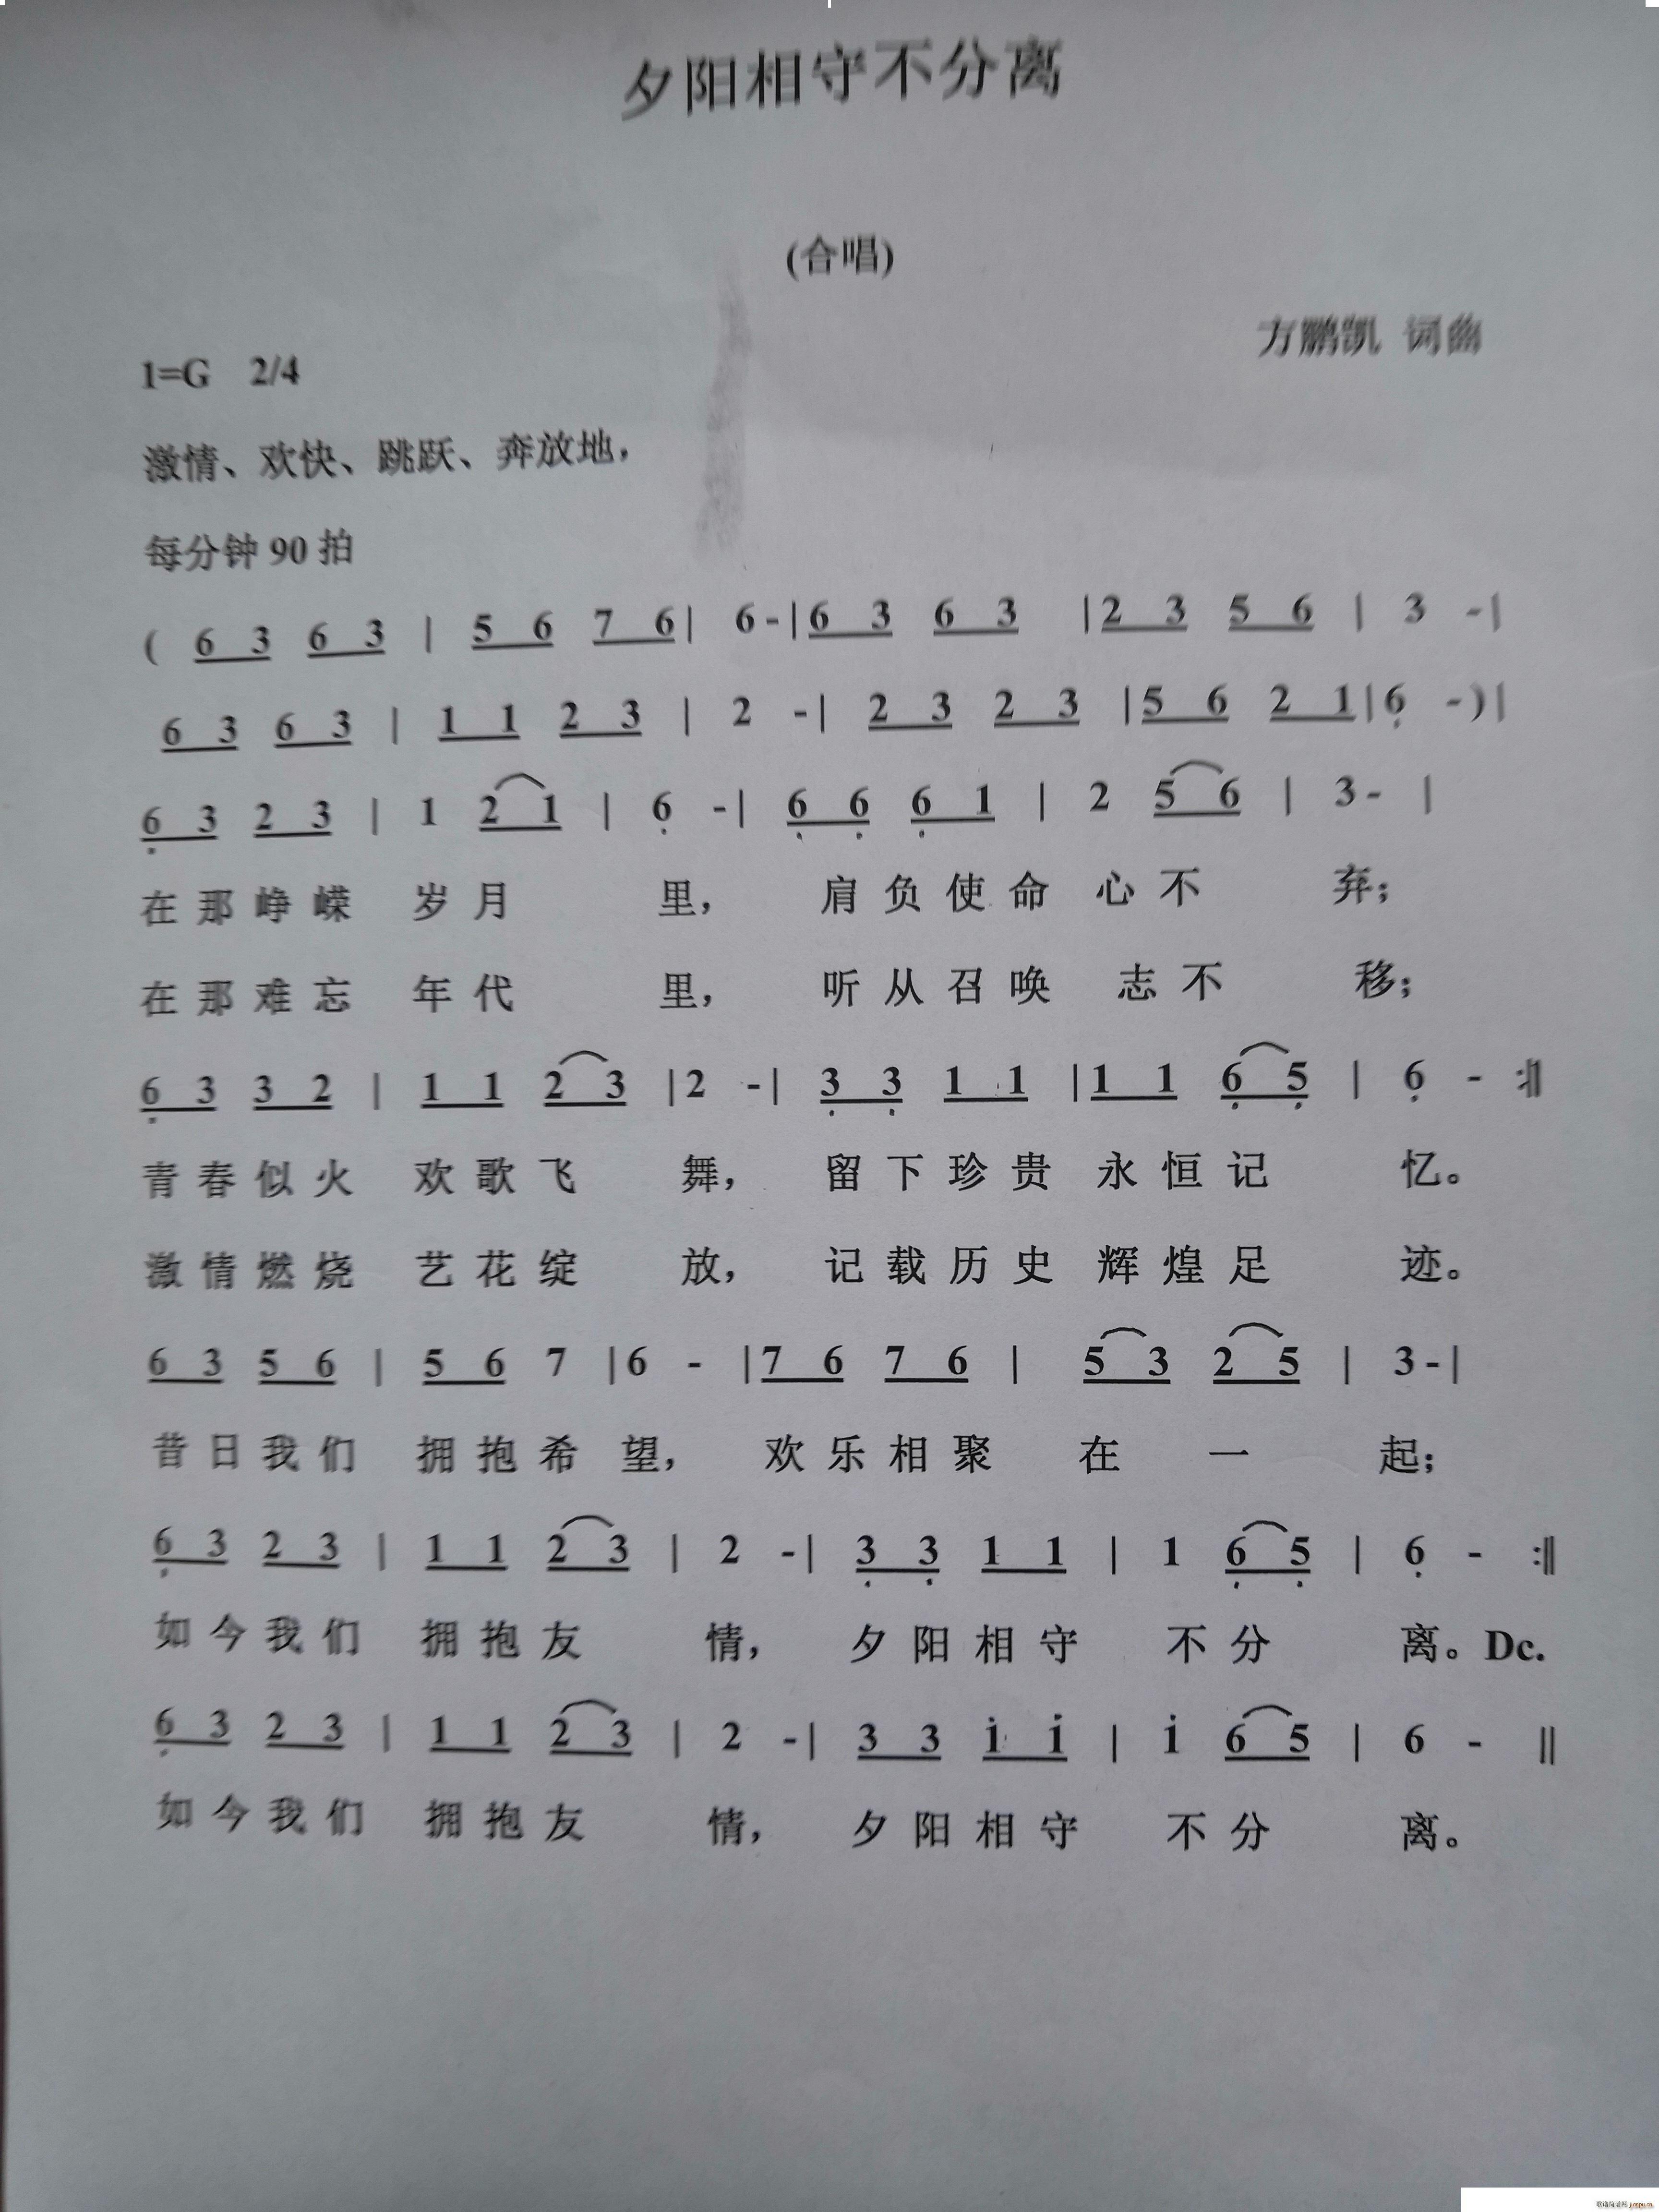 夕阳相守不分离
(合唱)
方鹏凯 词曲
1=G 2/4
激情、欢快、跳跃、奔放地，
每分钟 90 拍
( 6 3 6 3 | 5 6 7 6 | 6 - | 6 3 6 3 | 2 3 5 6 | 3 - |
6 3 6 3 | 1 1 2 3 | 2 - | 2 3 2 3 | 5 6 2 1 | 6̣ - ) |
6̣ 3 2 3 | 1 2 1 | 6̣ - | 6̣ 6̣ 6̣ 1 | 2 5 6 | 3 - |
在那峥嵘 岁月 里， 肩负使命 心不 弃；
在那难忘 年代 里， 听从召唤 志不 移；
6̣ 3 3 2 | 1 1 2 3 | 2 - | 3̣ 3̣ 1 1 | 1 1 6̣ 5̣ | 6̣ - :‖
青春似火 欢歌飞 舞， 留下珍贵 永恒记 忆。
激情燃烧 艺花绽 放， 记载历史 辉煌足 迹。
6 3 5 6 | 5 6 7 | 6 - | 7 6 7 6 | 5 3 2 5 | 3 - |
昔日我们 拥抱希 望， 欢乐相聚 在 一 起；
6̣ 3 2 3 | 1 1 2 3 | 2 - | 3̣ 3̣ 1 1 | 1 6̣ 5̣ | 6̣ - :‖
如今我们 拥抱友 情， 夕阳相守 不分 离。Dc.
6̣ 3 2 3 | 1 1 2 3 | 2 - | 3 3 1̇ 1̇ | 1̇ 6 5 | 6 - ‖
如今我们 拥抱友 情， 夕阳相守 不分 离。
歌谱简谱网 jianpu.cn